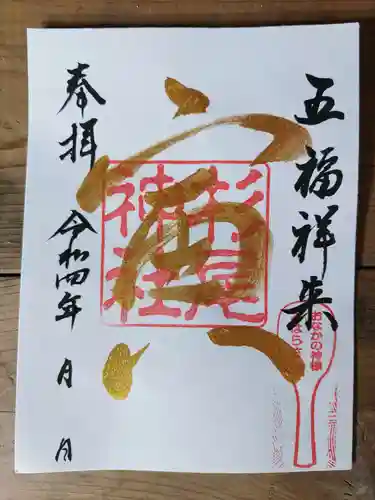 五福祥来
寅
杉尾
神社
おなかの神様
奉拝
令和四年 月 日